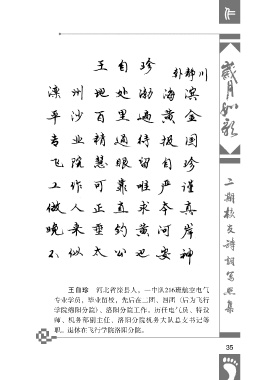 王自珍
孙静川
滦州地处渤海滨
平沙百里遍黄金
专业精通得报国
飞院慧眼留自珍
工作可靠唯严谨
做人正直求本真
晚来垂钓黄河岸
不似太公也安神
王自珍 河北省滦县人。一中队216班航空电气
专业学员，毕业留校，先后在二团、四团（后为飞行
学院绵阳分院）、洛阳分院工作。历任电气员、特设
师、机务部副主任、洛阳分院机务大队总支书记等
职。退休在飞行学院洛阳分院。
岁月如歌
二期校友诗词写照集
35